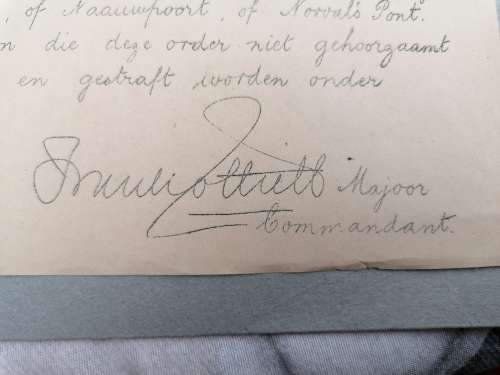 , of Naauwpoort, of Norval's Pont.
n die deze order niet gehoorzaamt
en gestraft worden onder
Majoor
Commandant.